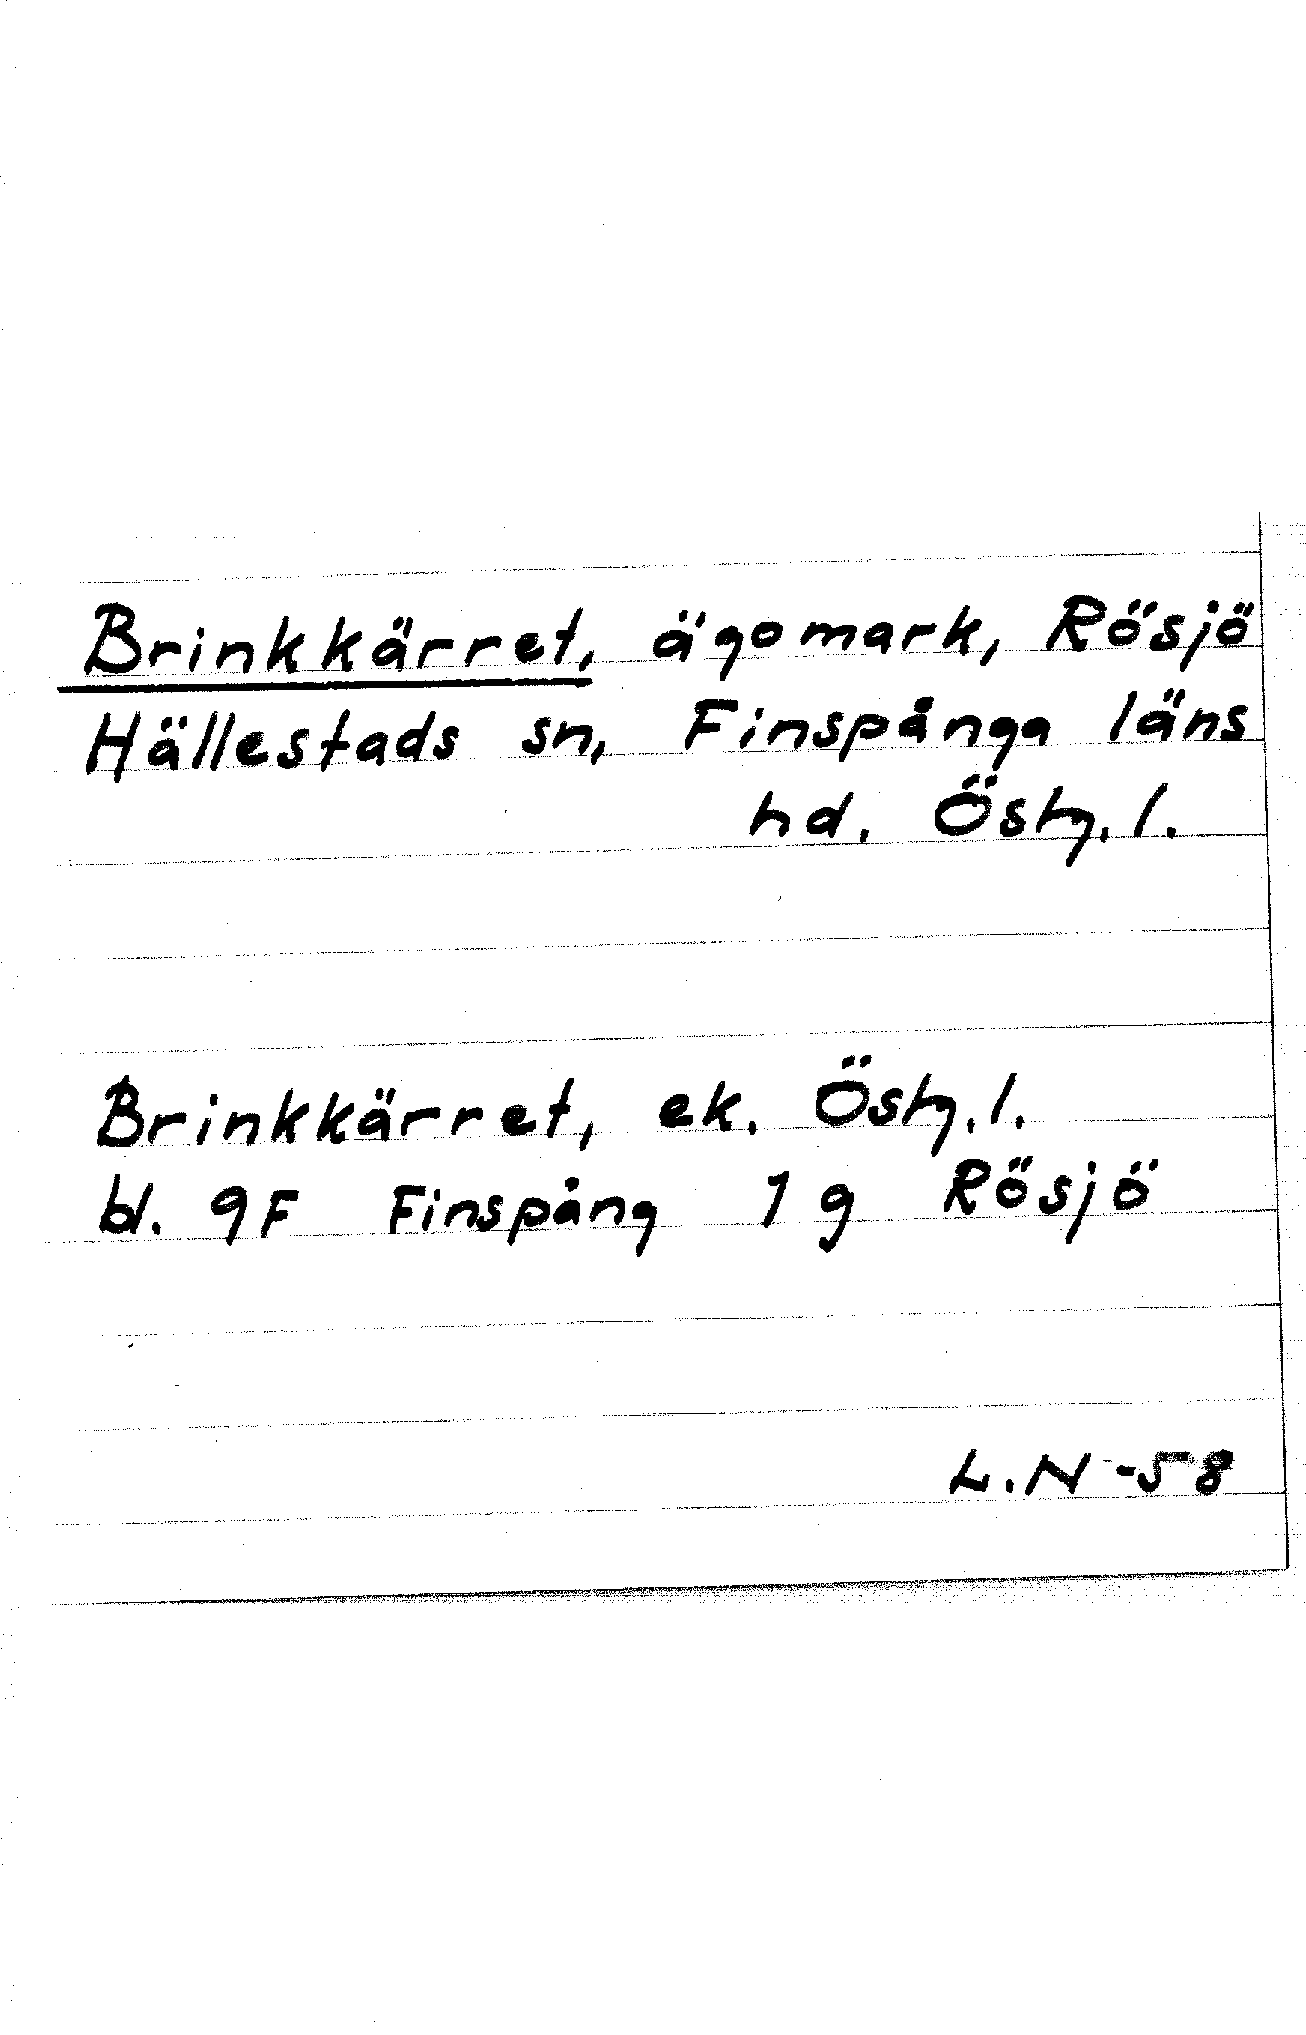 Brinkkärret, ägomark, Rösjö
Hällestads sn, Finspånga läns
hd. Östg. l.
Brinkkärret, ek. Östg. l.
bl. 9F Finspång 1 g Rösjö
L.N -58